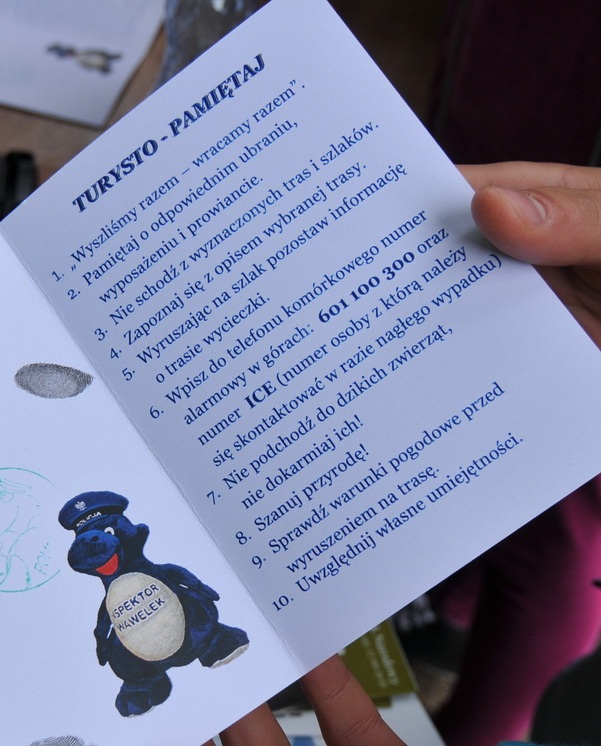 TURYSTO - PAMIĘTAJ
1. „Wyszliśmy razem – wracamy razem”.
2. Pamiętaj o odpowiednim ubraniu,
wyposażeniu i prowiancie.
3. Nie schodź z wyznaczonych tras i szlaków.
4. Zapoznaj się z opisem wybranej trasy.
5. Wyruszając na szlak pozostaw informację
o trasie wycieczki.
6. Wpisz do telefonu komórkowego numer
alarmowy w górach: 601 100 300 oraz
numer ICE (numer osoby z którą należy
się skontaktować w razie nagłego wypadku)
7. Nie podchodź do dzikich zwierząt,
nie dokarmiaj ich!
8. Szanuj przyrodę!
9. Sprawdź warunki pogodowe przed
wyruszeniem na trasę.
10. Uwzględnij własne umiejętności.
POLICJA
INSPEKTOR
WAWELEK